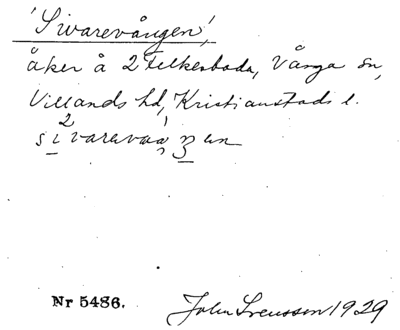 'Sivarevången',
åker å 2 Telkesboda, Vånga sn,
Villands hd, Kristianstads l.
sivarevaŋen
Nr 5486.
John Svensson 1929